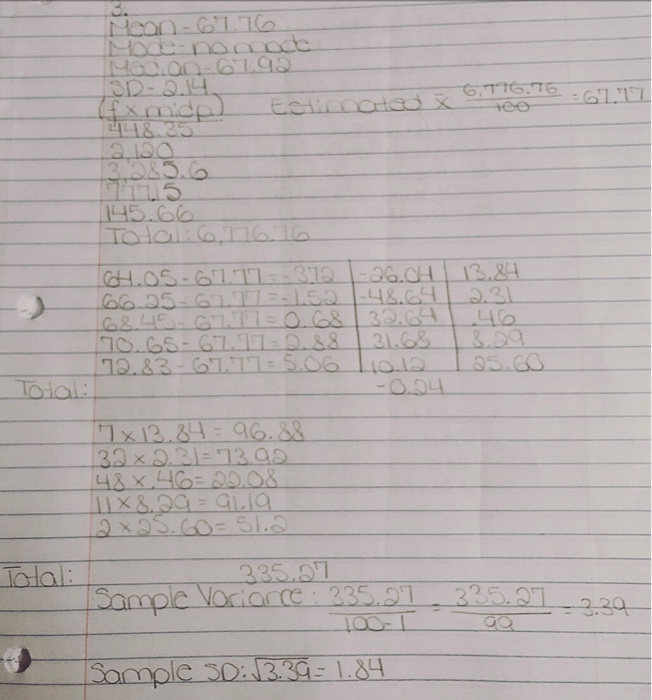 3.
Mean-67.76
Mode-no mode
Median-67.92
SD-2.14
(fxmidp) Estimated x̄ 6,776.76/100 = 67.77
448.35
2,120
3,285.6
777.15
145.66
Total: 6,776.76
64.05-67.77=-372 -26.04 13.84
66.25-67.77=-1.52 -48.64 2.31
68.45-67.77=0.68 32.64 .46
70.65-67.77=2.88 31.68 8.29
72.83-67.77=5.06 10.12 25.60
Total: -0.24
7x13.84=96.88
32x2.31=73.92
48x.46=22.08
11x8.29=91.19
2x25.60=51.2
Total: 335.27
Sample Variance: 335.27/100-1 = 335.27/99 = 3.39
Sample SD: √3.39=1.84